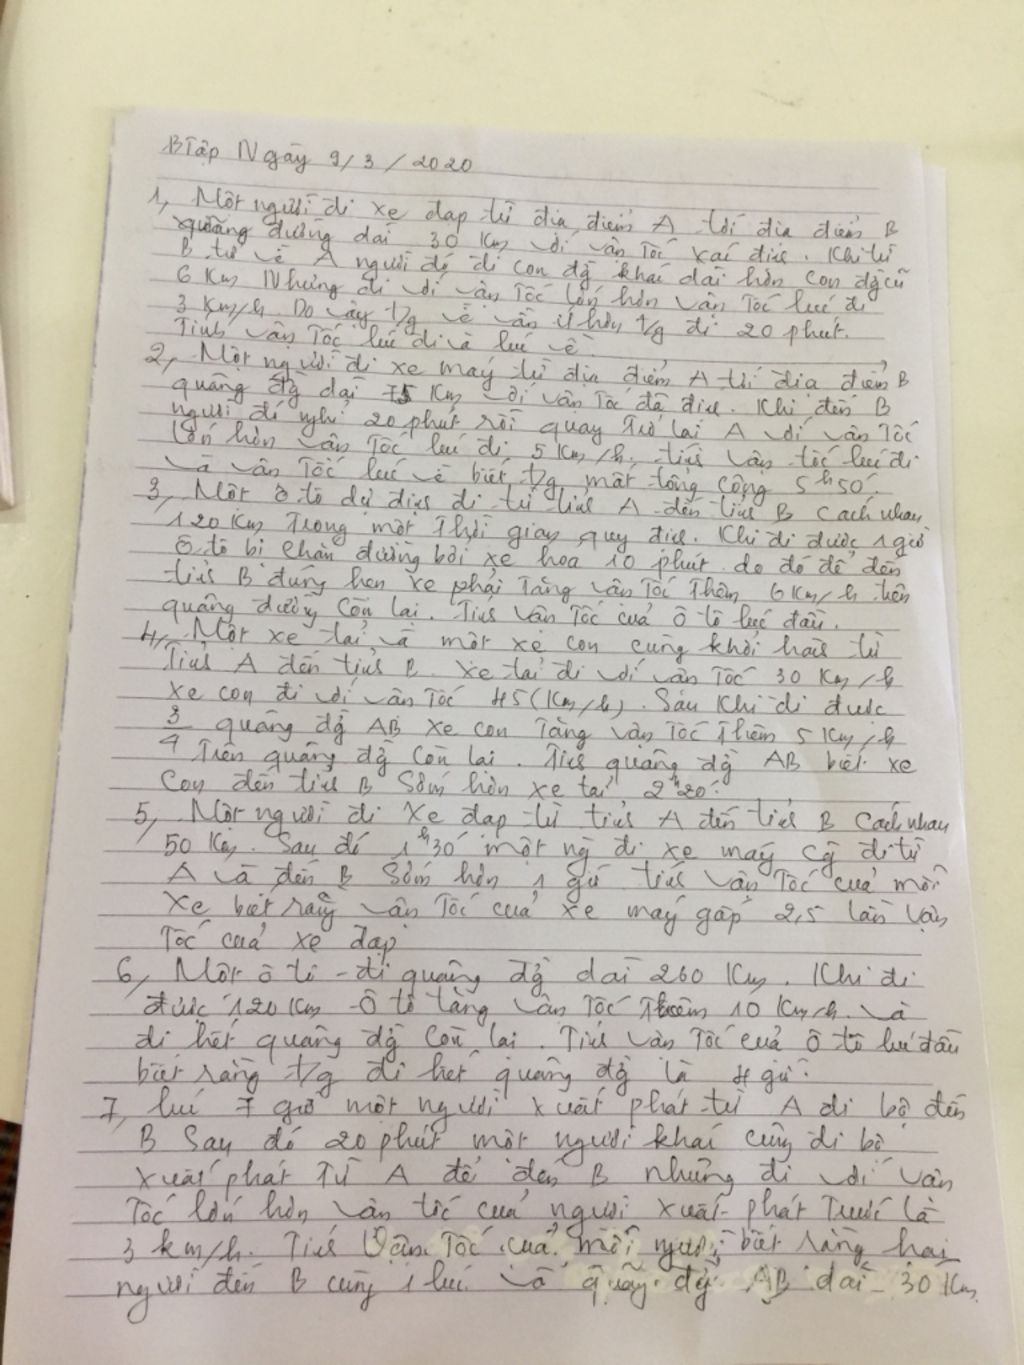 BTập Ngày 9/3/2020
1, Một người đi xe đạp từ địa điểm A tới địa điểm B
quãng đường dài 30 Km với vận Tốc xác định. Khi từ
B trở về A người đó đi con đg khác dài hơn con đg cũ
6 Km Nhưng đi với vận Tốc lớn hơn vận Tốc lúc đi
3 Km/h. Do vậy t/g về vẫn ít hơn t/g đi 20 phút.
Tính vận Tốc lúc đi và lúc về.
2, Một người đi xe máy từ địa điểm A tới địa điểm B
quãng đg dài 75 Km với vận Tốc đã định. Khi đến B
người đó nghỉ 20 phút rồi quay trở lại A với vận Tốc
lớn hơn vận Tốc lúc đi 5 Km/h. tính vận tốc lúc đi
và vận Tốc lúc về biết t/g mất tổng cộng 5h50'
3, Một ô tô dự định đi từ tỉnh A đến tỉnh B cách nhau
120 Km Trong một Thời gian quy định. Khi đi được 1 giờ
ô tô bị chắn đường bởi xe hoả 10 phút do đó để đến
tỉnh B đúng hẹn xe phải Tăng vận Tốc Thêm 6 Km/h trên
quãng đường còn lại. Tính vận Tốc của ô tô lúc đầu.
4, Một xe tải và một xe con cùng khởi hành từ
Tỉnh A đến tỉnh B. xe tải đi với vận Tốc 30 Km/h
xe con đi với vận Tốc 45 (Km/h). Sau Khi đi được
3/4 quãng đg AB xe con Tăng vận Tốc Thêm 5 Km/h
Trên quãng đg còn lại. Tính quãng đg AB biết xe
con đến tỉnh B Sớm hơn xe tải 2h20'.
5, Một người đi xe đạp từ tỉnh A đến tỉnh B Cách nhau
50 Km. Sau đó 1h30' một ng đi xe máy cg đi từ
A và đến B Sớm hơn 1 giờ tính vận Tốc của mỗi
xe biết rằng vận Tốc của xe máy gấp 2,5 lần vận
Tốc của xe đạp
6, Một ô tô đi quãng đg dài 260 Km. Khi đi
được 120 Km Ô tô tăng vận Tốc Thêm 10 Km/h và
đi hết quãng đg còn lại. Tính vận Tốc của ô tô lúc đầu
biết rằng t/g đi hết quãng đg là 4 giờ.
7, lúc 7 giờ một người xuất phát từ A đi bộ đến
B Sau đó 20 phút một người khác cũng đi bộ
xuất phát Từ A để đến B nhưng đi với vận
Tốc lớn hơn vận tốc của người xuất phát Trước là
3 km/h. Tính Vận Tốc của mỗi người biết rằng hai
người đến B cùng 1 lúc và quãng đg AB dài 30 Km